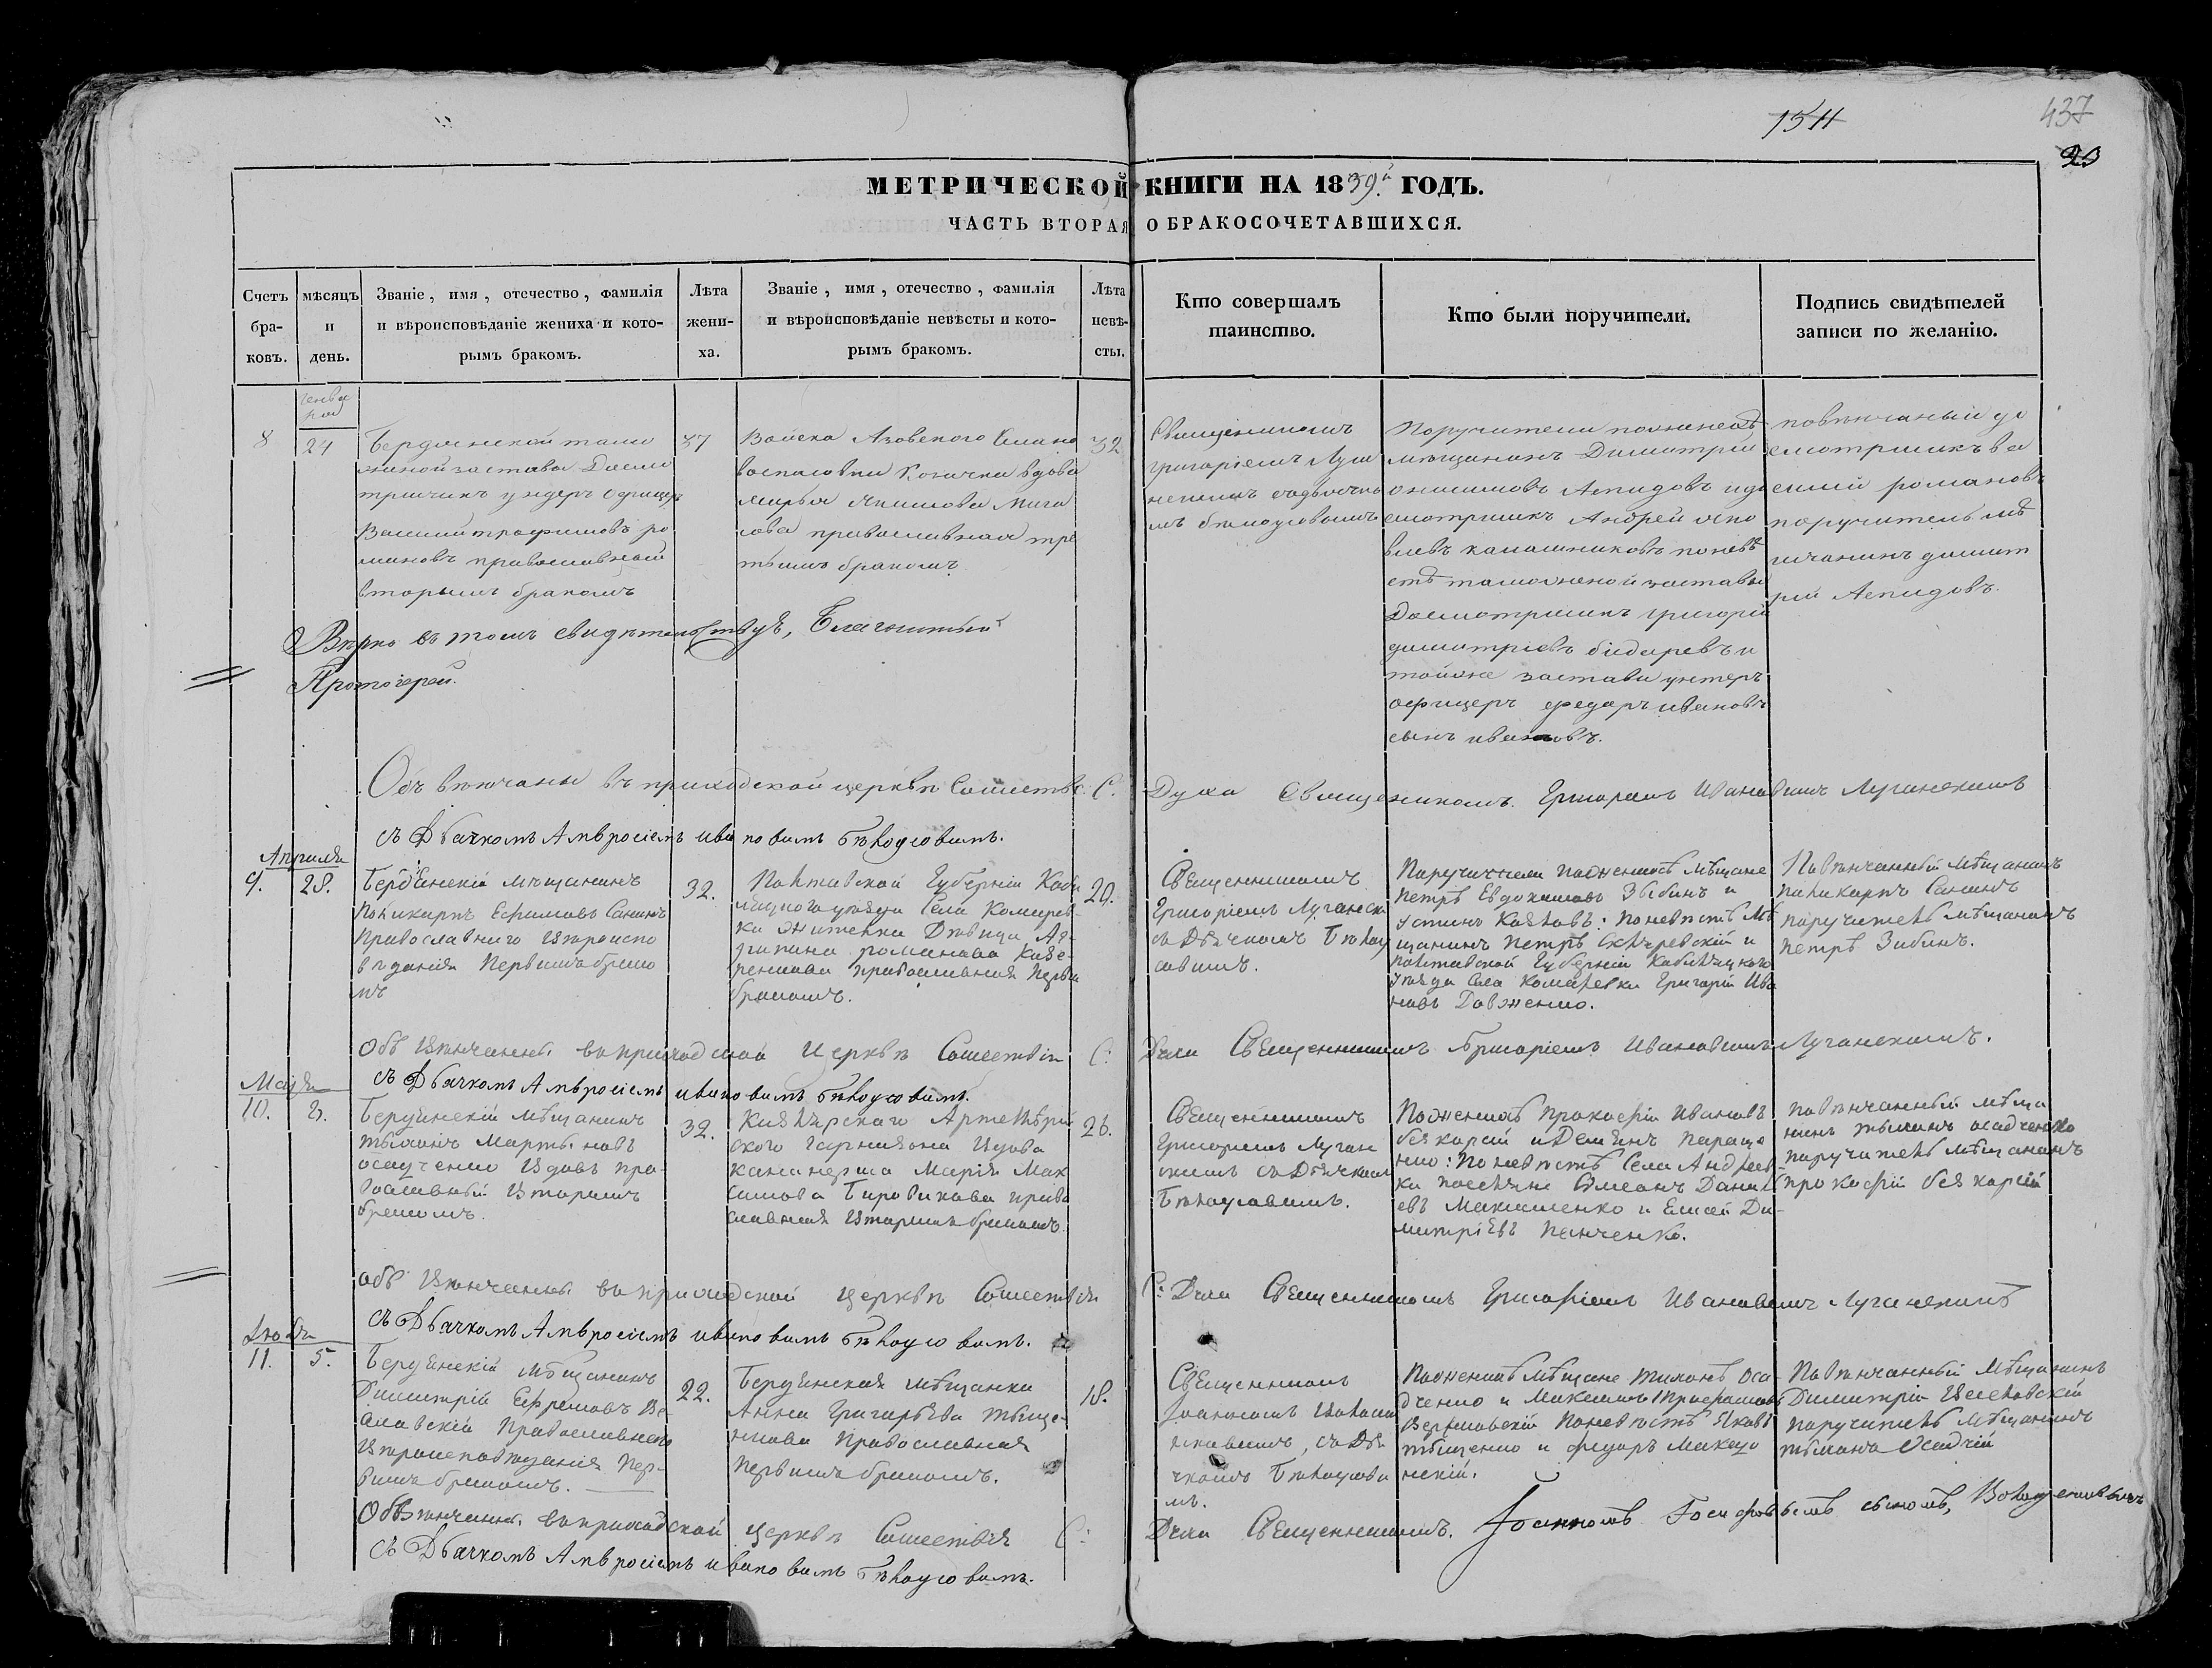 1511
437
29
МЕТРИЧЕСКОЙ КНИГИ НА 1839.й ГОДЪ.
ЧАСТЬ ВТОРАЯ О БРАКОСОЧЕТАВШИХСЯ.
Счетъ браковъ.
мѣсяцъ и день.
Званіе, имя, отечество, фамилія
и вѣроисповѣданіе жениха и кото-
рымъ бракомъ.
Лѣта
жени-
ха.
Званіе, имя, отечество, фамилія
и вѣроисповѣданіе невѣсты и кото-
рымъ бракомъ.
Лѣта
невѣ-
сты.
Кто совершалъ
таинство.
Кто были поручители.
Подпись свидѣтелей
записи по желанію.
8
24
Бердянской тамо
женой заставы Досмо
трщикъ ундеръ офицеръ
Василий трофимовъ ро
мановъ православный
вторымъ бракомъ
37
Войска Азовского
Козачка вдова
Марья
православная тре
тьимъ бракомъ
32
Священникомъ
григоріемъ Луга
нскимъ
Поручители по женихѣ
мѣщанинъ Димитрій
онисимовъ Аспидовъ и до
смотрщикъ Андрей яко
влевъ калашниковъ по невѣ
стѣ таможеной заставы
Досмотрщикъ григорій
димитріевъ бидаревъ и
тойже заставы унтеръ
офицеръ федоръ ивановъ
сынъ ивановъ.
повѣнчаный до
смотрщикъ ва
силий романовъ
поручитель мѣ
щанинъ димит
рій Аспидовъ.
Вѣрно въ томъ свидѣтельствуѣ, Благочинный
Протоіерей.
Обвѣнчаны въ приходской церквѣ Сошеств: С. Духа Священникомъ Григоріемъ Ивановимъ Луганскимъ
съ Дьячкомъ Амвросіемъ ивановимъ Бѣлоусовимъ.
Апрѣля
9.
28.
Бердянскій мѣщанинъ
Поликарпъ Ефимовъ Санинъ
Православнаго Вѣроиспо
вѣданія Первимъ брако
мъ
32.
Полтавской Губерніи Кобы
ляцкого уѣзда Села Комаров-
ки жителька Дѣвица Аг-
рипина романова
православная Первим
бракомъ.
20.
Священникомъ
Григоріемъ Луганск
съ Дьячкомъ Бѣлоу
совимъ.
Поручители по женихѣ Мѣщане
Петръ Евдокимовъ Зыбинъ и
Устинъ Козловъ: по невѣстѣ Мѣ
щанинъ Петръ и
Полтавской Губерніи Кобиляцкого
уѣзда Села Комаревки Григорій Ива
новъ Довженко.
Повѣнчанный Мѣщанинъ
Поликарпъ Санинъ
поручитель мѣщанинъ
Петръ Зибинъ.
Обвѣнчанны. въ приходской Церквѣ Сошествія С: Духа Священникомъ Григоріемъ Ивановимъ Луганскимъ.
съ Дьячкомъ Амвросіемъ ивановимъ Бѣлоусовимъ.
Маія
10.
Бердянскій Мѣщанинъ
Мартыновъ
осадченко Вдовъ пра-
вославный Вторимъ
бракомъ.
32.
Артелѣрій
ского Гарнизона Вдова
канонерша Марія Мак
симова права
славная Вторимъ бракомъ.
26.
Священникомъ
Григоріемъ Луган
скимъ съ Дьячкомъ
Бѣлоусовимъ.
По женихѣ Прокофій Ивановъ
и Демянъ Параще
нко: По невѣстѣ Села Андреев
ки поселяне Симеонъ Данил
евъ Максименко и Елисей Ди-
митріевъ Панченко.
повѣнчанный Мѣща
нинъ осадченко
поручитель Мѣщанинъ
прокофій
обвѣнчанны. въ приходской церквѣ Сошествія С: Духа Священникомъ Григоріемъ Ивановимъ Луганскимъ
съ Дьячкомъ Амвросіемъ ивановимъ Бѣлоусовимъ.
11.
5.
Бердянскій Мѣщанинъ
Димитрій Ефремовъ Ве-
селовскій Православнаго
Вѣроисповѣданія Пер-
вимъ бракомъ.
22.
Бердянская Мѣщанка
Анна Григорьева Тыще-
нкова Православная
Первимъ бракомъ.
18.
Священникомъ
Іоанномъ
съ Дья
чкомъ Бѣлоусови
мъ.
По женихѣ Мѣщане Тихонъ Оса-
дченко и Максимъ Трофимовъ
По невѣстѣ Яковъ
тыщенко и Федоръ
нскій.
Повѣнчанный Мѣщанинъ
Димитрій Веселовскій
поручитель Мѣщанинъ
Осадчій
Обвѣнчанны. въ приходской церквѣ Сошествія С: Духа Священникомъ. Іоанномъ Іосифовымъ сыномъ,
съ Дьячкомъ Амвросіемъ ивановимъ Бѣлоусовимъ.